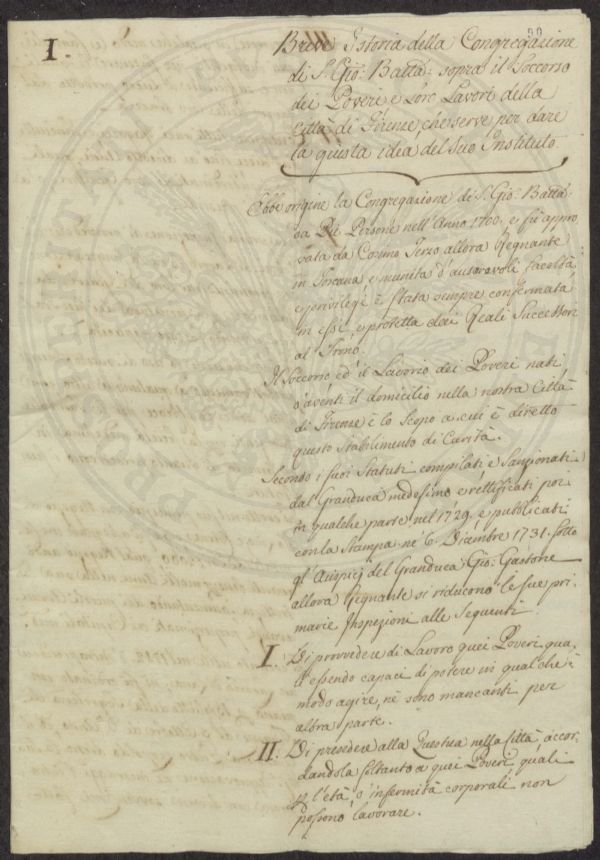 I.
Breve Istoria della Congregazione
di S. Gio: Batta: sopra il Soccorso
dei Poveri e Loro Lavori della
Città di Firenze, che serve per dare
la giusta idea del suo Instituto.
Ebbe origine la Congregazione di S. Gio: Batta:
da Persone nell'Anno 1700. e fù appro
vata da Cosimo Terzo allora Regnante
in Toscana e munita d'autorevoli facoltà
e privilegi è stata sempre confermata
in essi, e protetta dai Reali Successori
al Trono.
Il Soccorso ed il Lavorio dei Poveri nati
o aventi il domicilio nella nostra Città
di Firenze è lo Scopo a cui è diretto
questo Stabilimento di Carità.
Secondo i suoi Statuti compilati e Sanzionati
dal Granduca medesimo e rettificati poi
in qualche parte nel 1729. e pubblicati
con la Stampa ne' 6. Dicembre 1731. sotto
gl'Auspicj del Granduca Gio: Gastone
allora Regnante si riducono le sue pri
marie Ispezioni alle Seguenti
I. Di provvedere di Lavoro quei Poveri qua
li essendo capaci di potere in qualche
modo agire, nè sono mancanti per
altra parte.
II. Di presedere alla Questua nella Città accor
dandola soltanto a quei Poveri, quali
p l'età, o infermità corporali non
possono lavorare.